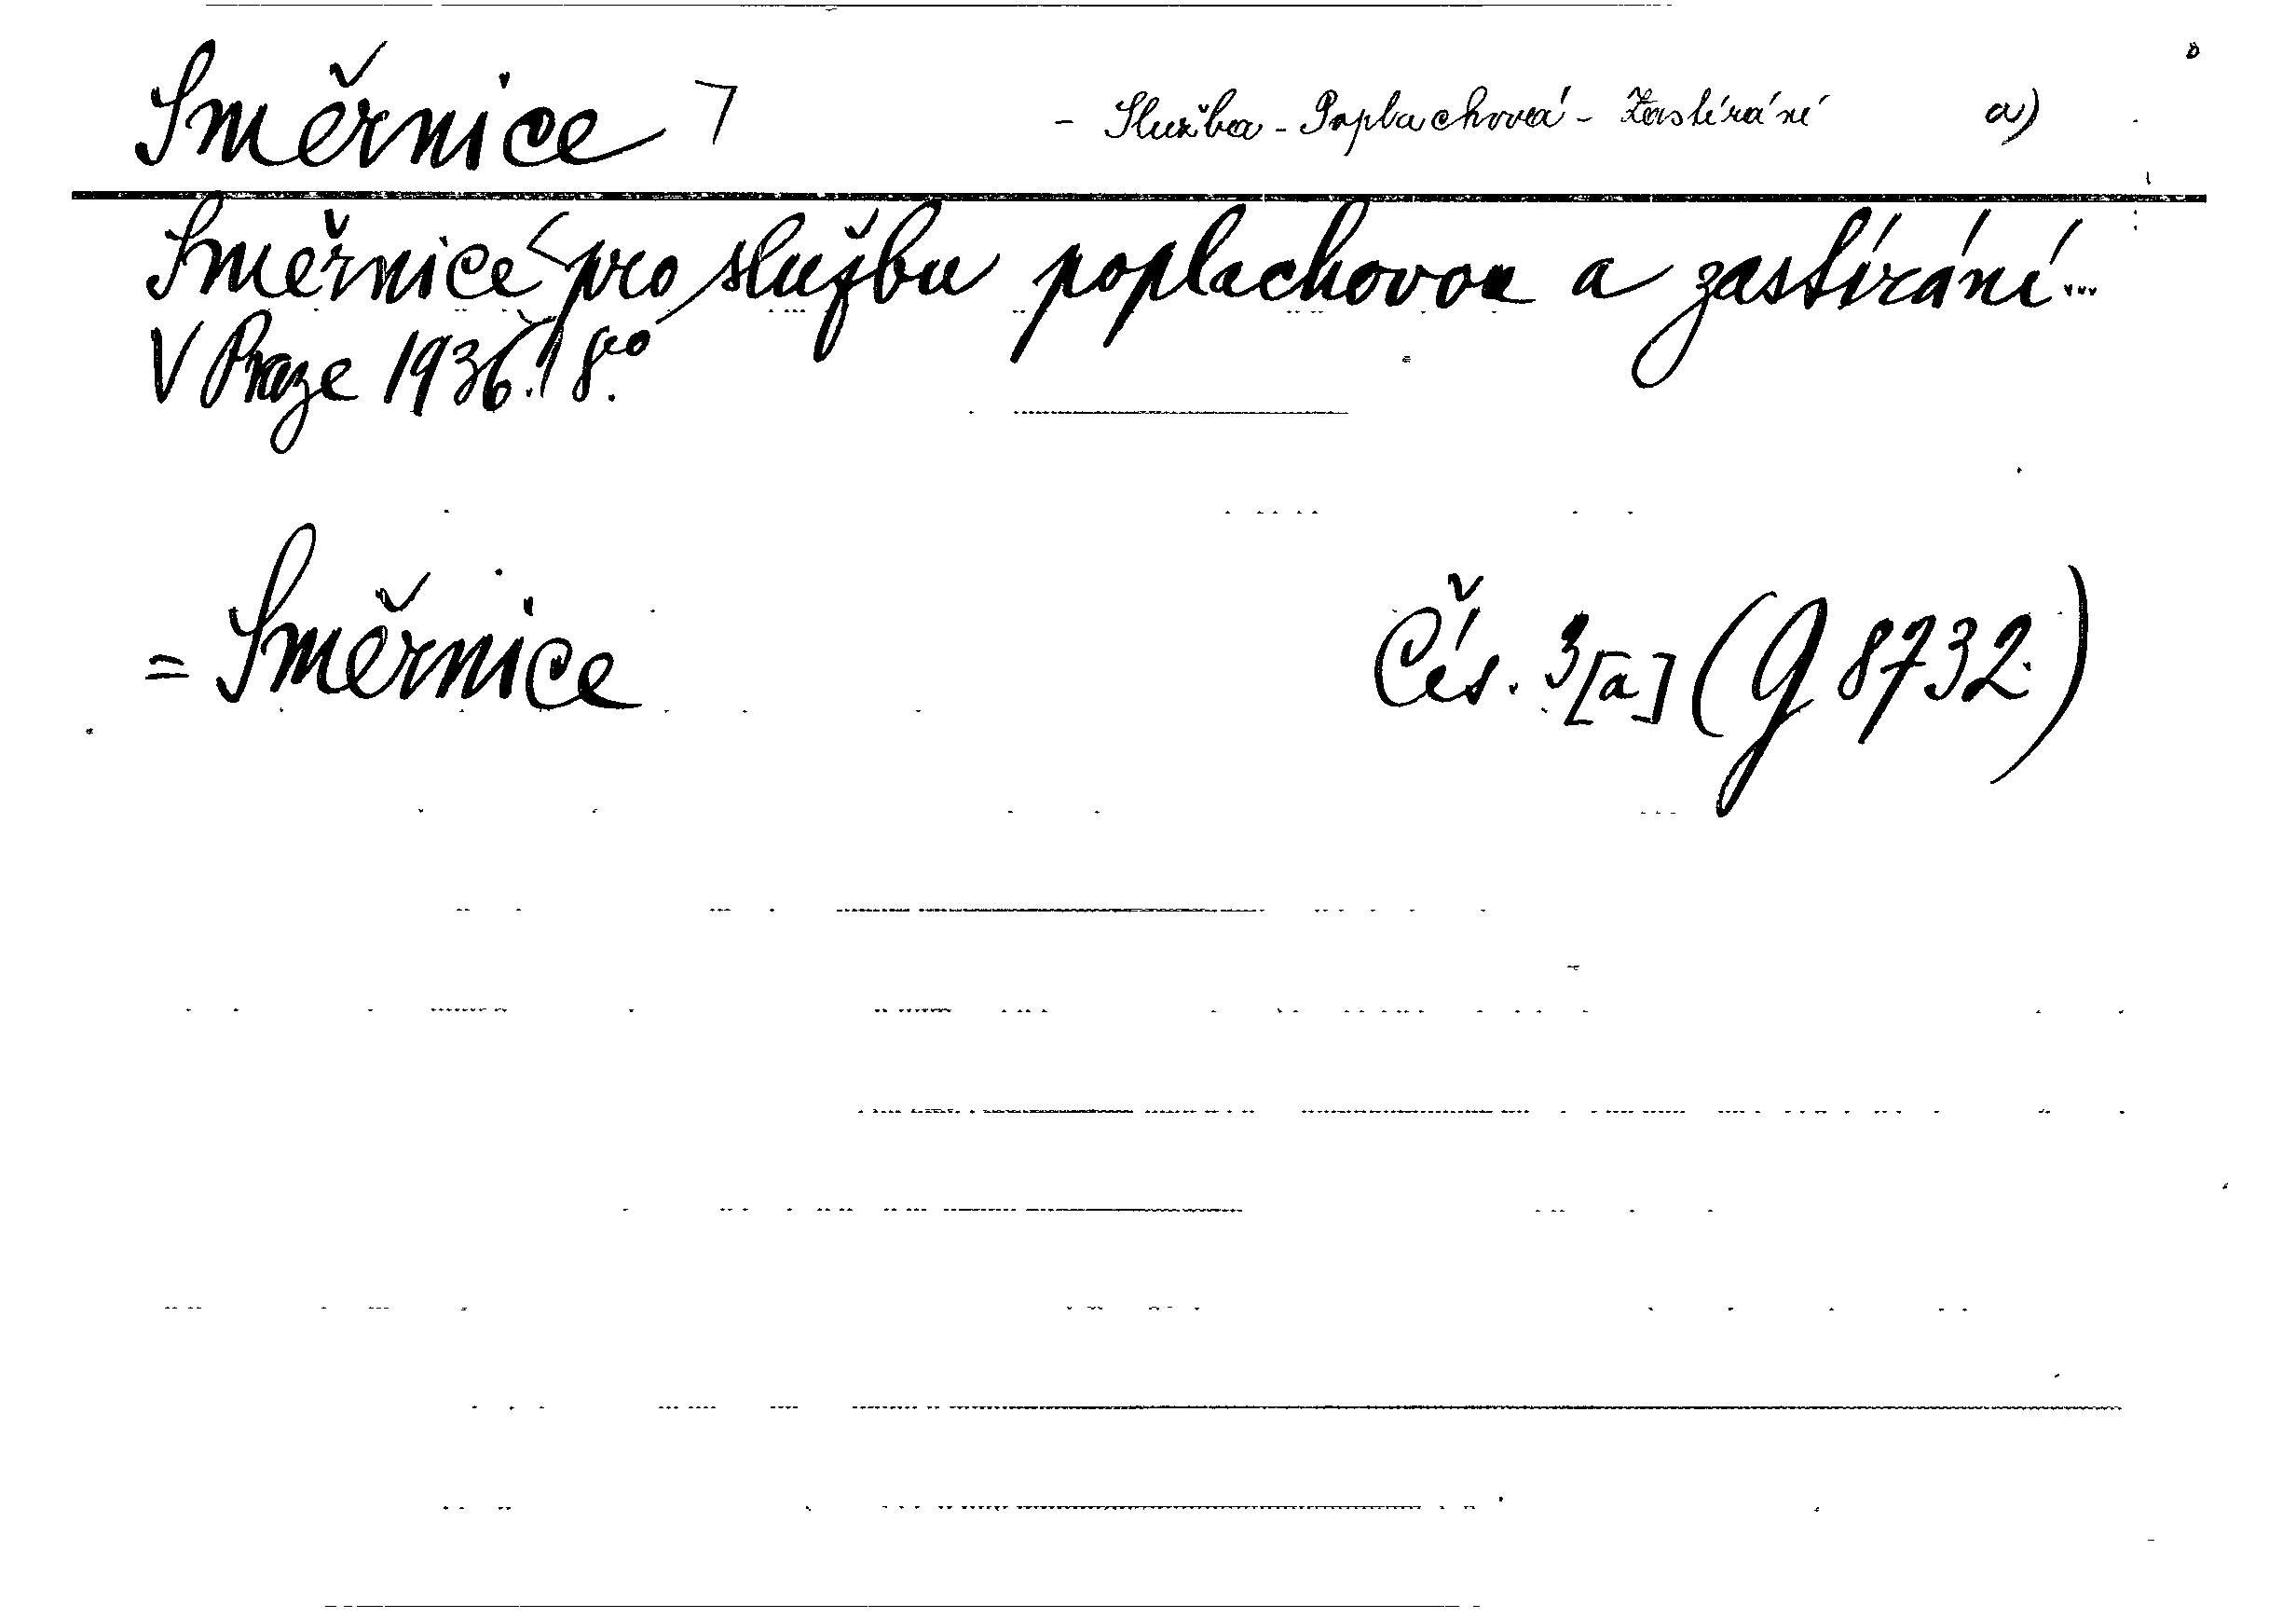 Směrnice ⌝ - Služba - Poplachová - Zastírání a)
Směrnice pro službu poplachovou a zastírání...
V Praze 1936. 8⁰.
= Směrnice Čís. 3[a] (G 8732.)